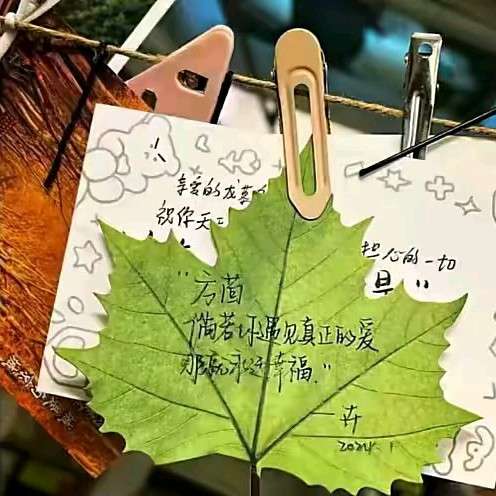 亲爱的龙
祝你天
担心的一切
"方茴
倘若你遇见真正的爱
那就永远幸福."
一卉
2024